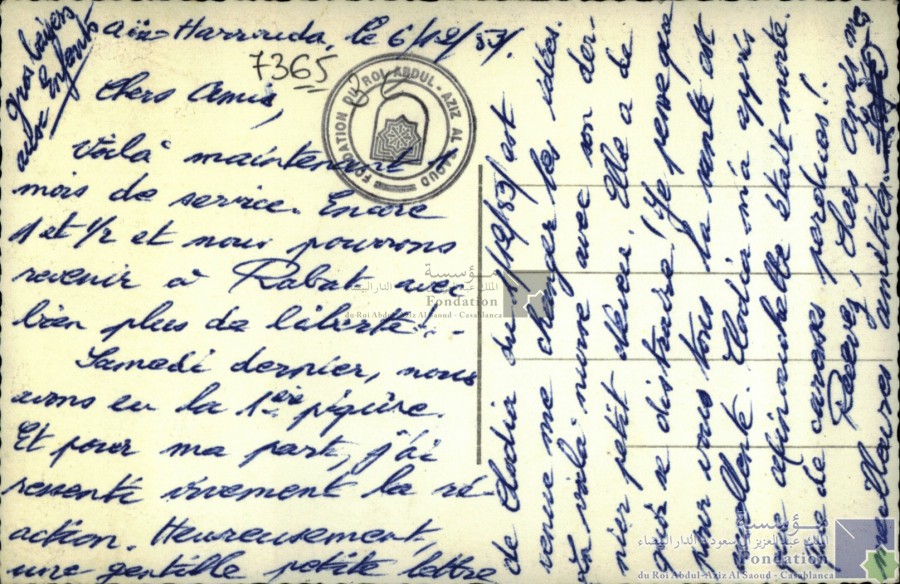 Aïn-Harrouda, le 6/12/53.
7365
FONDATION DU ROI ABDUL-AZIZ AL SAOUD
Chers Amis,
Voilà maintenant 1
mois de service. Encore
1 et 1/2 et nous pourrons
revenir à Rabat avec
bien plus de liberté!..
Samedi dernier, nous
avons eu la 1ère piqûre.
Et pour ma part, j'ai
ressenti vivement la ré-
action. Heureusement,
une gentille petite lettre
de Clodia du 1/12/53 est
venue me changer les idées.
La voilà avec son der-
nier petit
se distraire! Je pense que
pour vous tous la santé est
excellente. Clodia m'a appris
que était morte.
de caresses perdues!
Recevez, chers amis, mes
meilleures amitiés.
gros baisers
aux Enfants
مؤسسة
الملك عبد العزيز آل سعود الدار البيضاء
Fondation
du Roi Abdul-Aziz Al Saoud - Casablanca
مؤسسة
الملك عبد العزيز آل سعود الدار البيضاء
Fondation
du Roi Abdul-Aziz Al Saoud - Casablanca